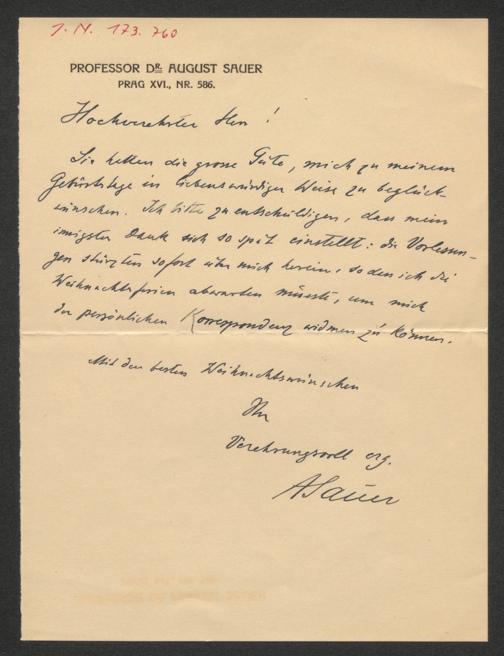 I. N. 173.760
PROFESSOR DR. AUGUST SAUER
PRAG XVI., NR. 586.
Hochverehrter Herr!
Sie hatten die grosse Güte, mich zu meinem
Geburtstage in liebenswürdiger Weise zu beglück-
wünschen. Ich bitte zu entschuldigen, dass mein
innigster Dank sich so spät einstellt: die Vorlesun-
gen stürzten sofort über mich herein, so dass ich die
Weihnachtsferien abwarten müsste, um mich
der persönlichen Korrespondenz widmen zu können.
Mit den besten Weihnachtswünschen
Ihr
Verehrungsvoll erg.
ASauer